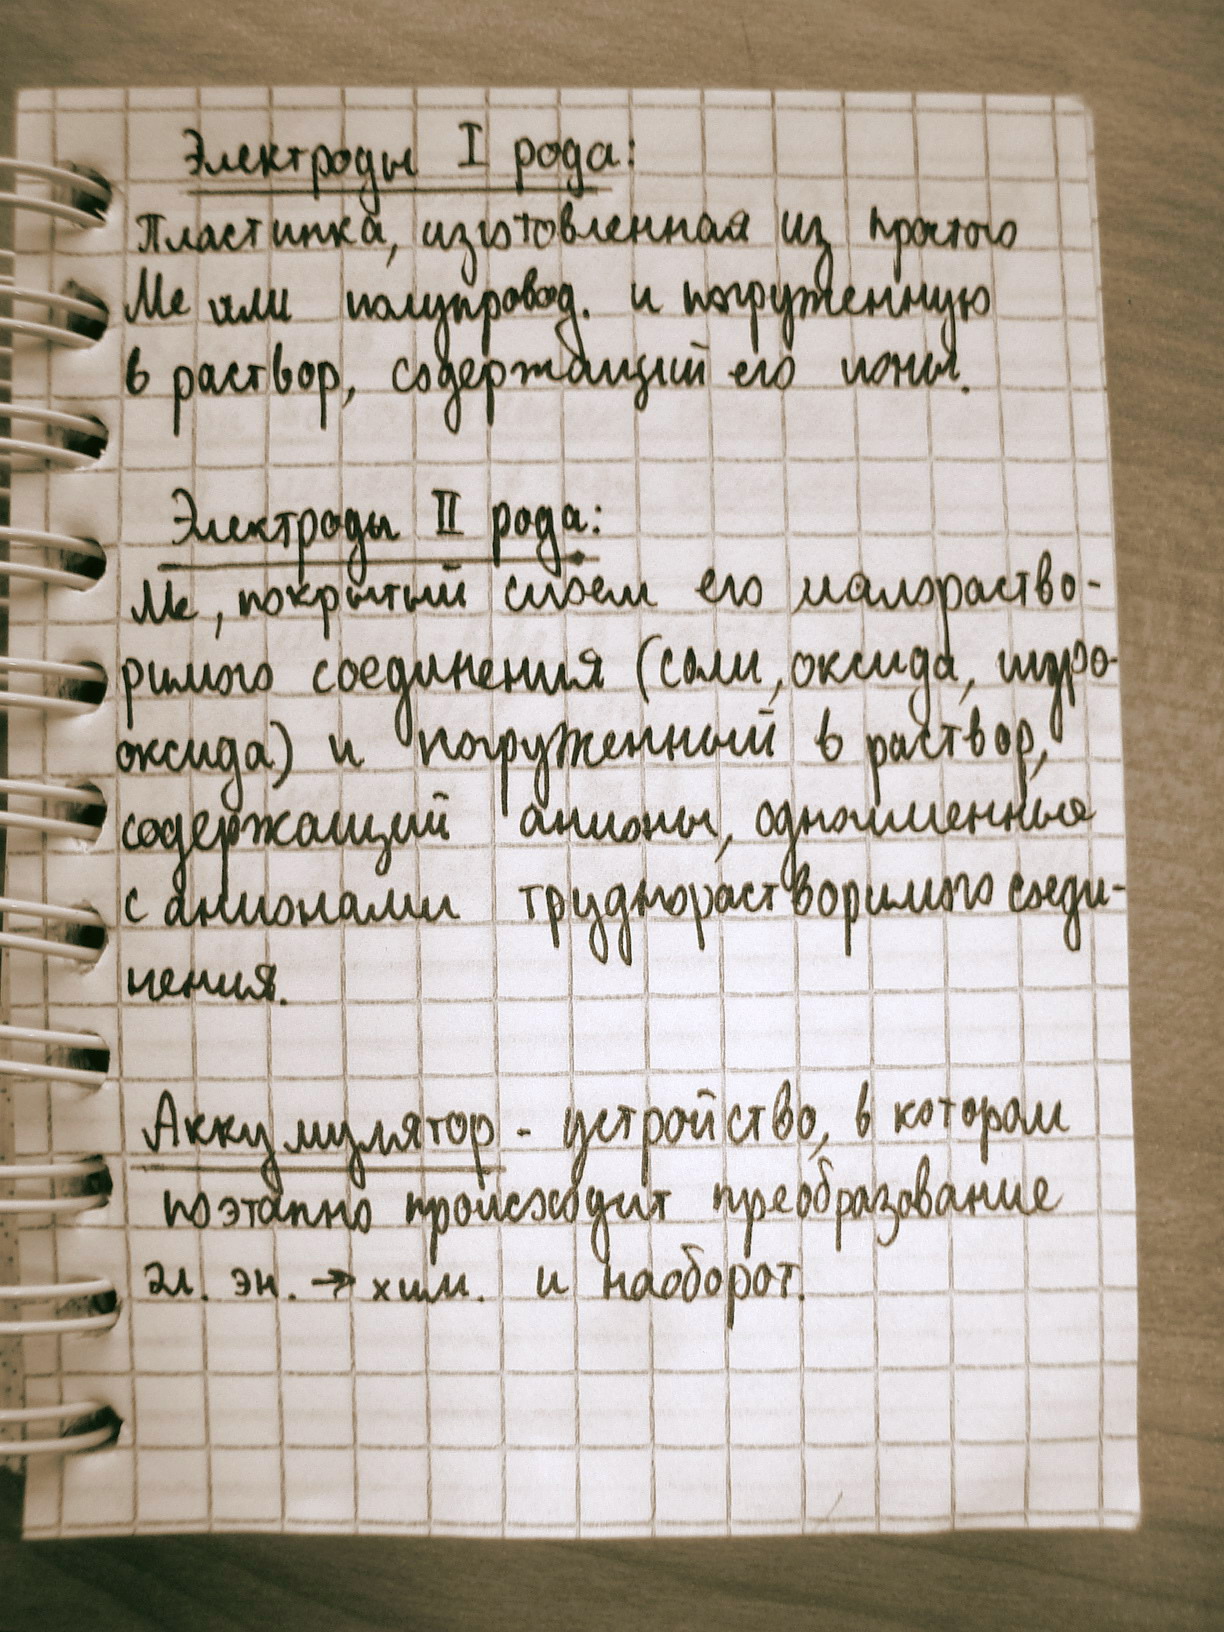 Электроды I рода:
Пластинка, изготовленная из простого
Ме или полупровод. и погруженную
в раствор, содержащий его ионы.
Электроды II рода:
Ме, покрытый слоем его малораство-
римого соединения (соли, оксида, гидро-
оксида) и погруженный в раствор,
содержащий анионы, одноименные
с анионами труднорастворимого соеди-
нения.
Аккумулятор - устройство, в котором
поэтапно происходит преобразование
эл. эн. → хим. и наоборот.